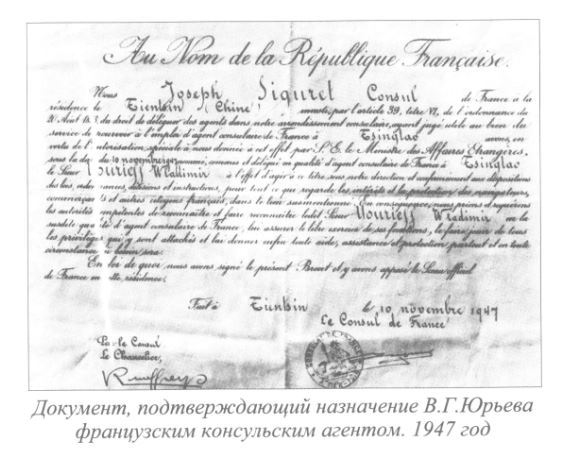 Au Nom de la République Française.
Nous Joseph Siguret Consul de France à la
résidence de Tientsin (Chine) investi, par l'article 39, titre VI, de l'ordonnance du
20 Août 18 3, du droit de déléguer des agents dans notre arrondissement consulaire, ayant jugé utile au bien du
service de pourvoir à l'emploi d'agent consulaire de France à Tsingtao avons, en
vertu de l'autorisation spéciale à nous donnée à cet effet par S. E. le Ministre des Affaires Étrangères,
sous la da du 10 novembre 1947 nommé, commis et délégué en qualité d'agent consulaire de France à Tsingtao
le Sieur Yourieff Wladimir à l'effet d'agir à ce titre, sous notre direction et conformément aux dispositions
des lois, ordonnances, décisions et instructions, pour tout ce qui regarde les intérêts et la protection, des navigateurs,
commerçants et autres citoyens français, dans le lieu susmentionné. En conséquence, nous prions et requérons
les autorités compétentes de reconnaître et faire reconnaître ledit Sieur Yourieff Wladimir en la
susdite qualité d'agent consulaire de France, lui assurer le libre exercice de ses fonctions, le faire jouir de tous
les privilèges qui y sont attachés et lui donner enfin toute aide, assistance et protection partout et en toute
circonstance où besoin sera.
En foi de quoi, nous avons signé le présent Brevet et y avons apposé le Sceau officiel
de France en cette résidence.
Fait à Tientsin le 10 novembre 1947
Le Consul de France
Par le Consul
Le Chancelier,
Документ, подтверждающий назначение В.Г.Юрьева
французским консульским агентом. 1947 год